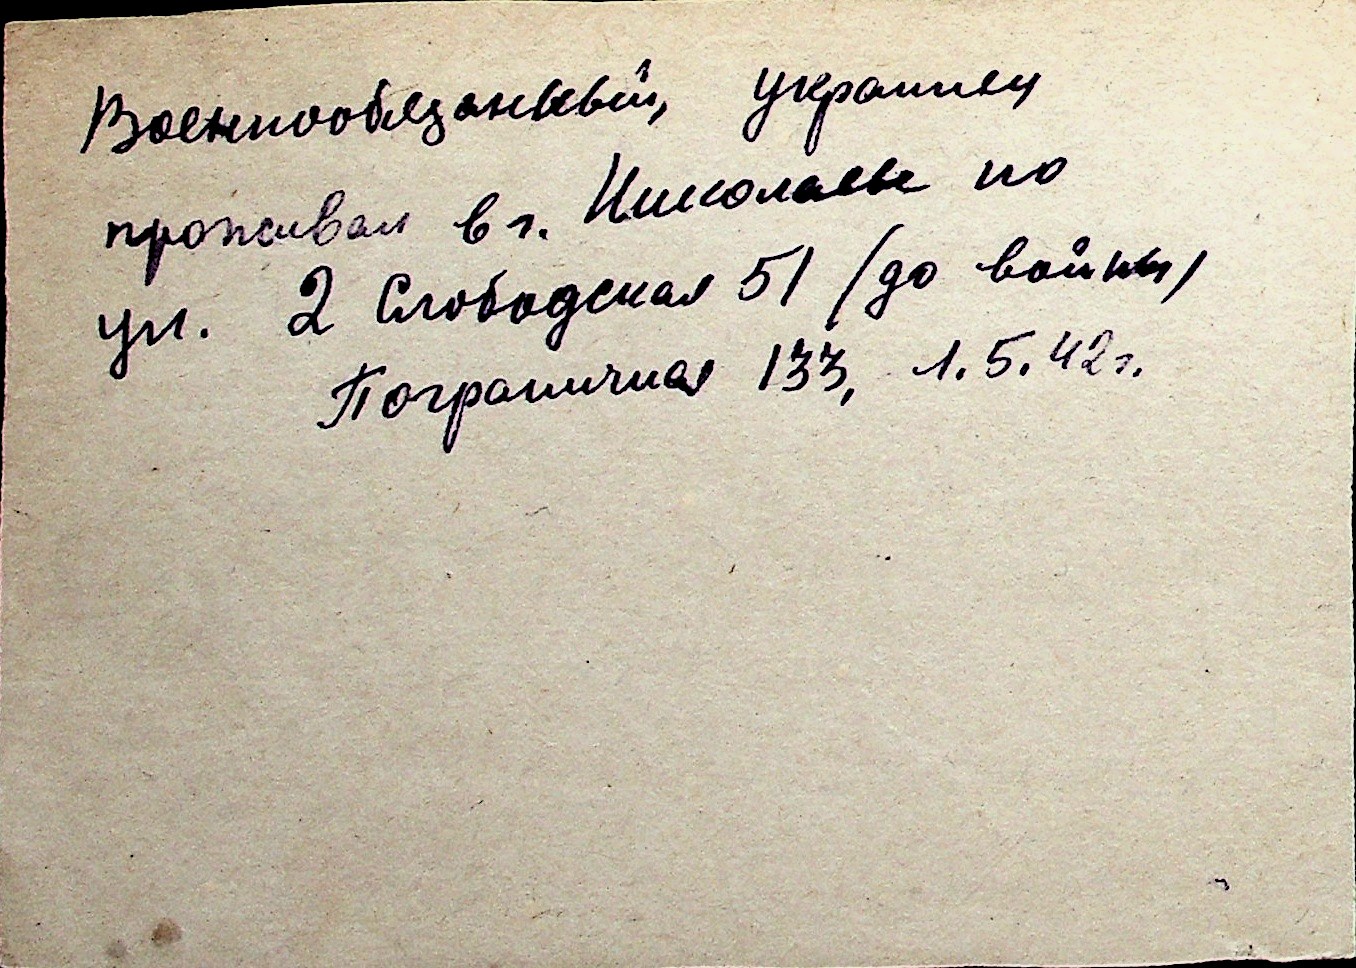 Военнообязанный, украинец
проживал в г. Николаеве по
ул. 2 Слободская 51 (до войны)
Пограничная 133, 1.5.42г.